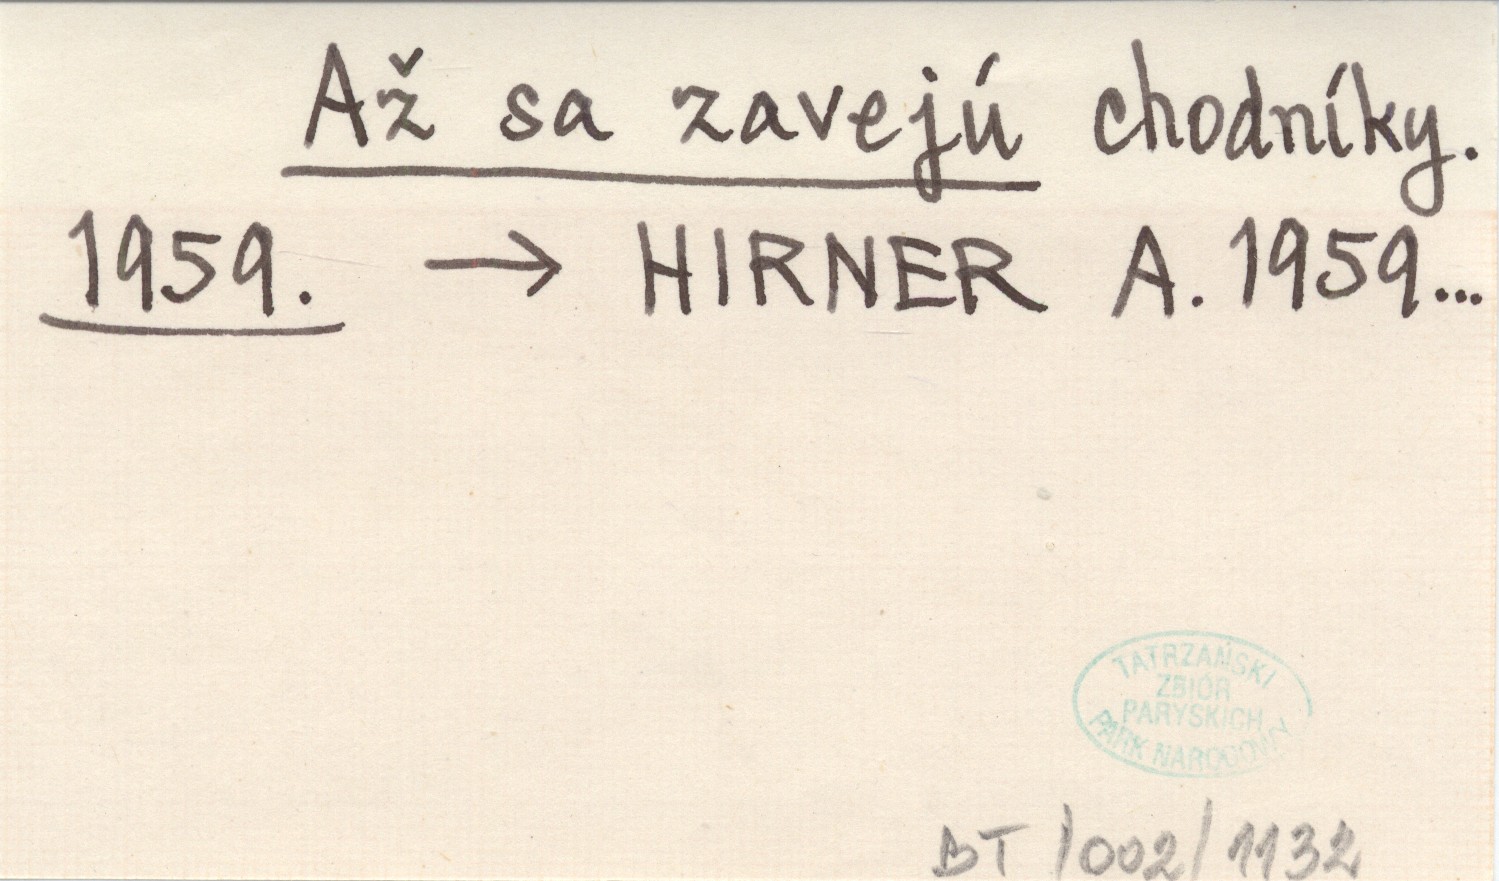 Až sa zavejú chodníky.
1959. → HIRNER A. 1959...
TATRZAŃSKI
ZBIÓR
PARYSKICH
PARK NARODOWY
BT/002/1132